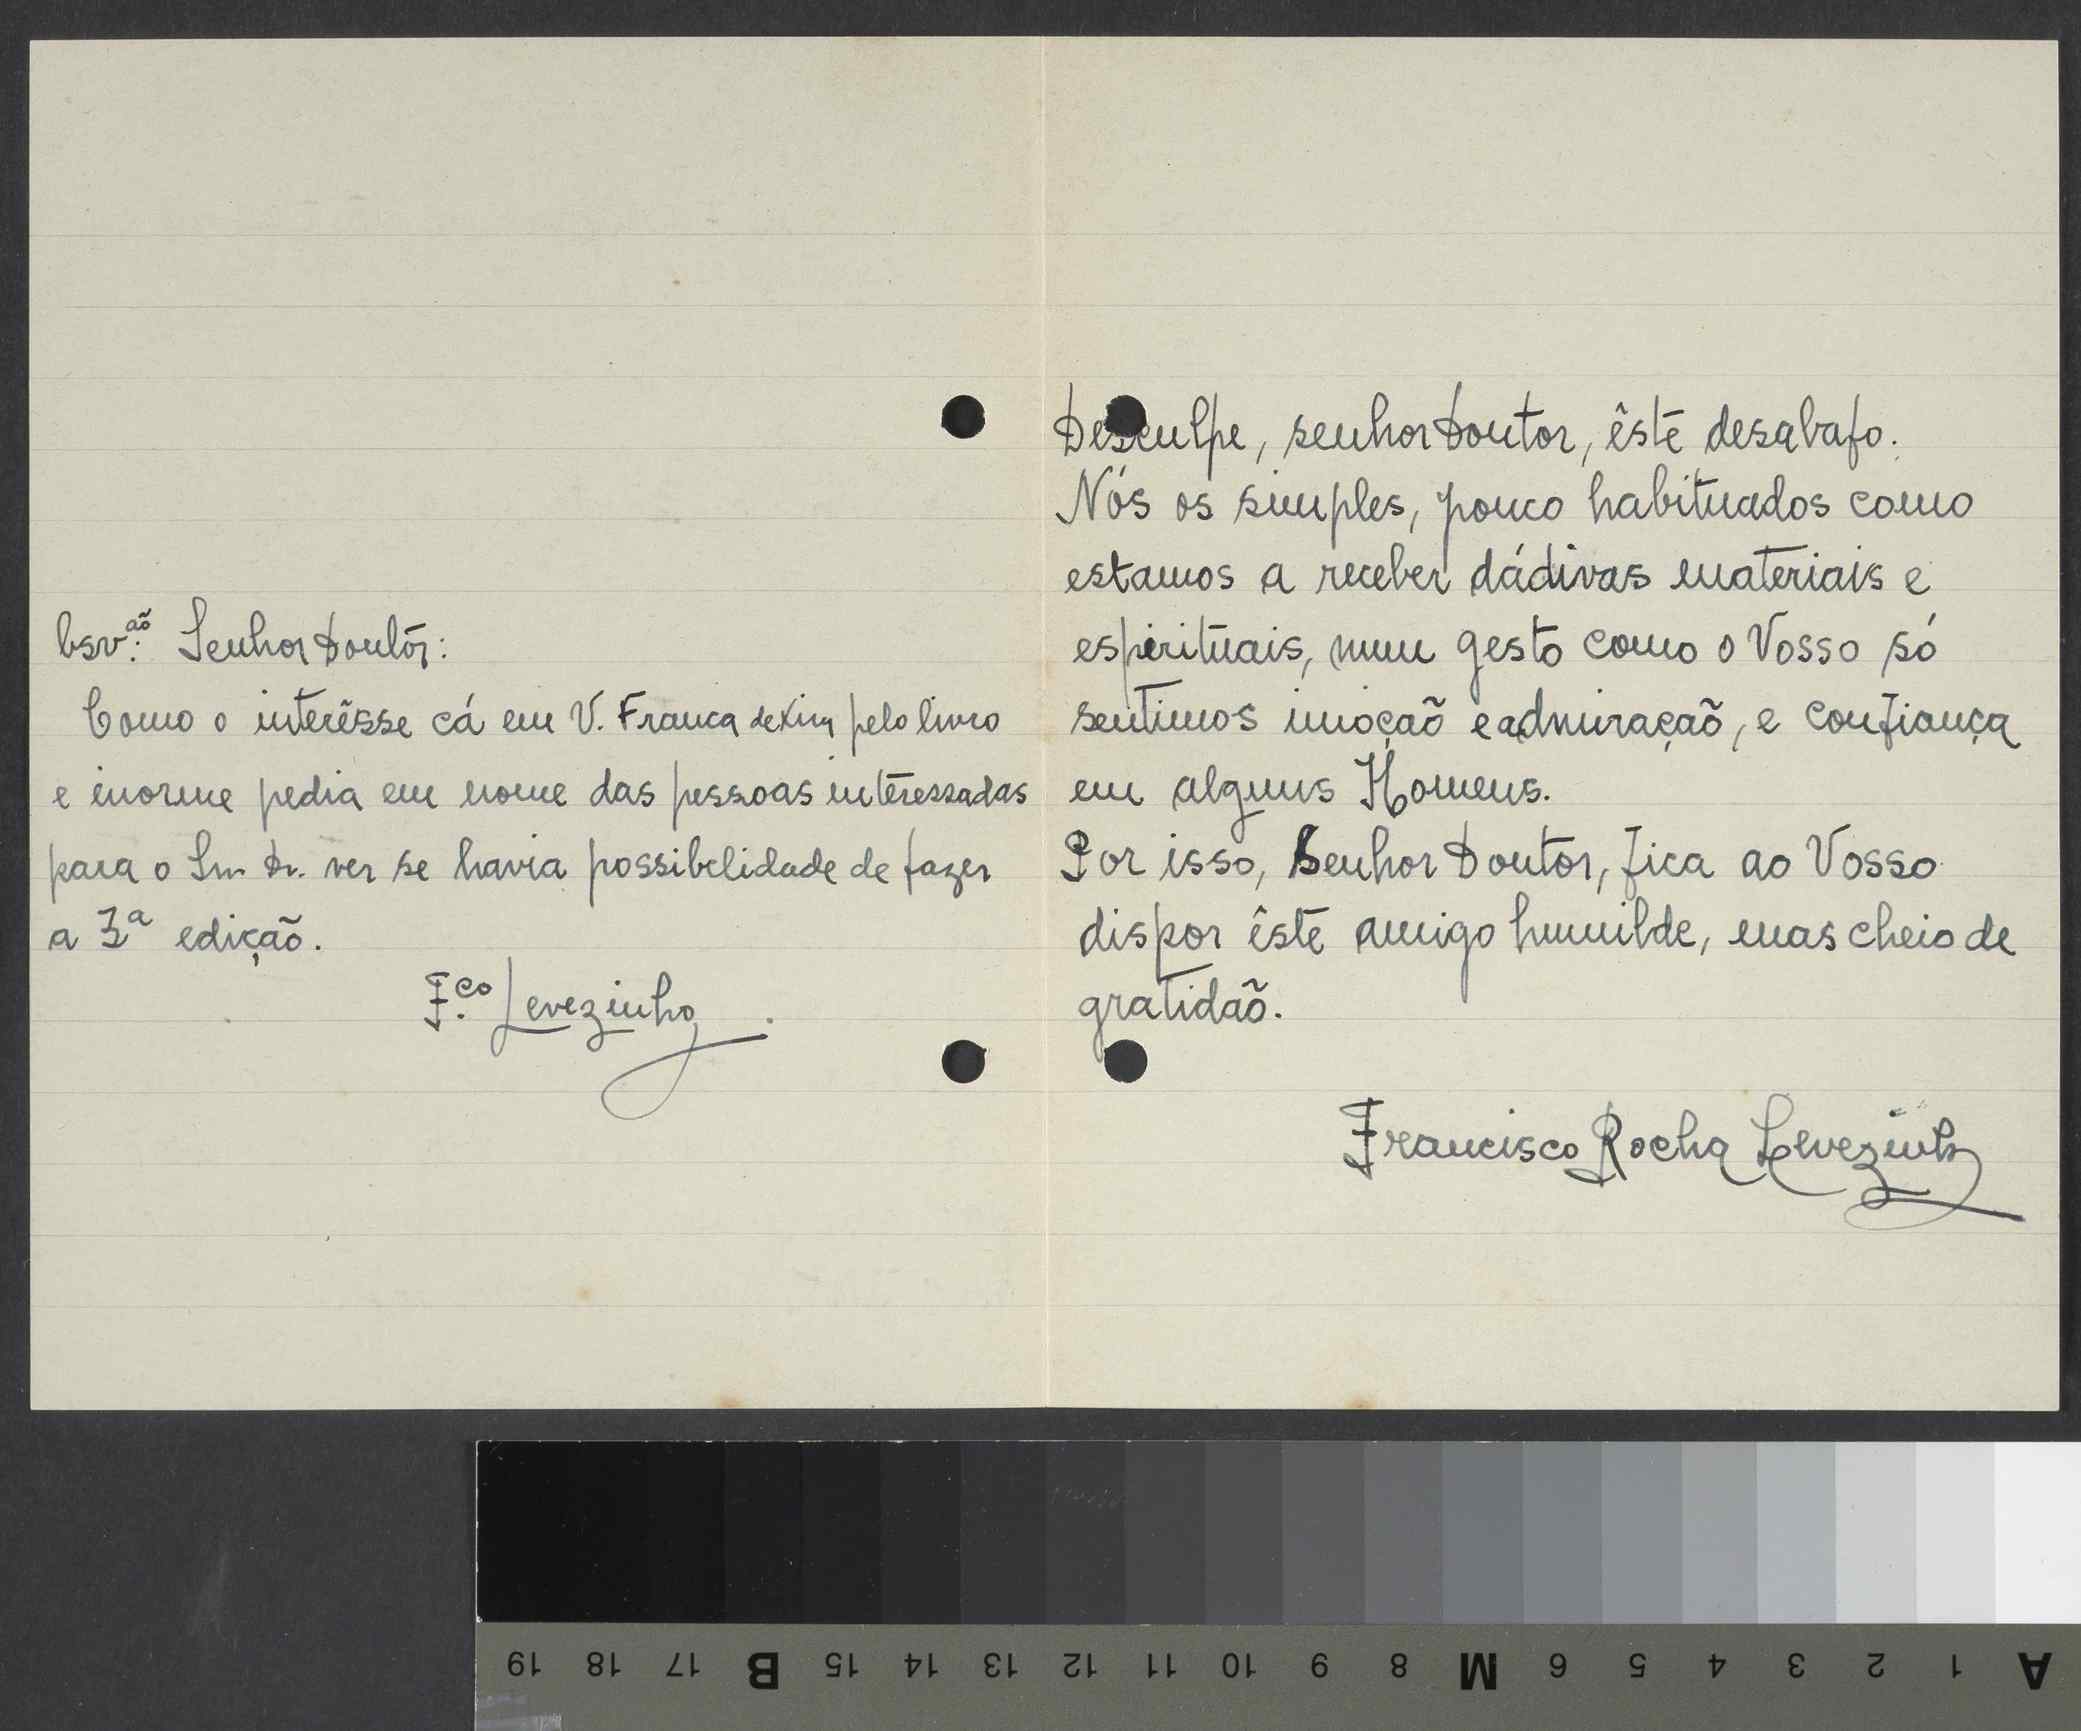 bsv.ão Senhor Doutôr:
Como o interêsse cá em V. Franca de Xira pelo livro
e inorme pedia em nome das pessoas interessadas
para o Snr Dr. ver se havia possibelidade de fazer
a 3ª edição.
F.co Levezinho
Desculpe, senhor Doutor, êste desabafo.
Nós os simples, pouco habituados como
estamos a receber dádivas materiais e
espirituais, num gesto como o Vosso só
sentimos imoção e admiração, e confiança
em alguns Homens.
Por isso, Senhor Doutor, fica ao Vosso
dispor êste amigo humilde, mas cheio de
gratidão.
Francisco Rocha Levezinho
19 18 17 B 15 14 13 12 11 10 9 8 M 6 5 4 3 2 1 A